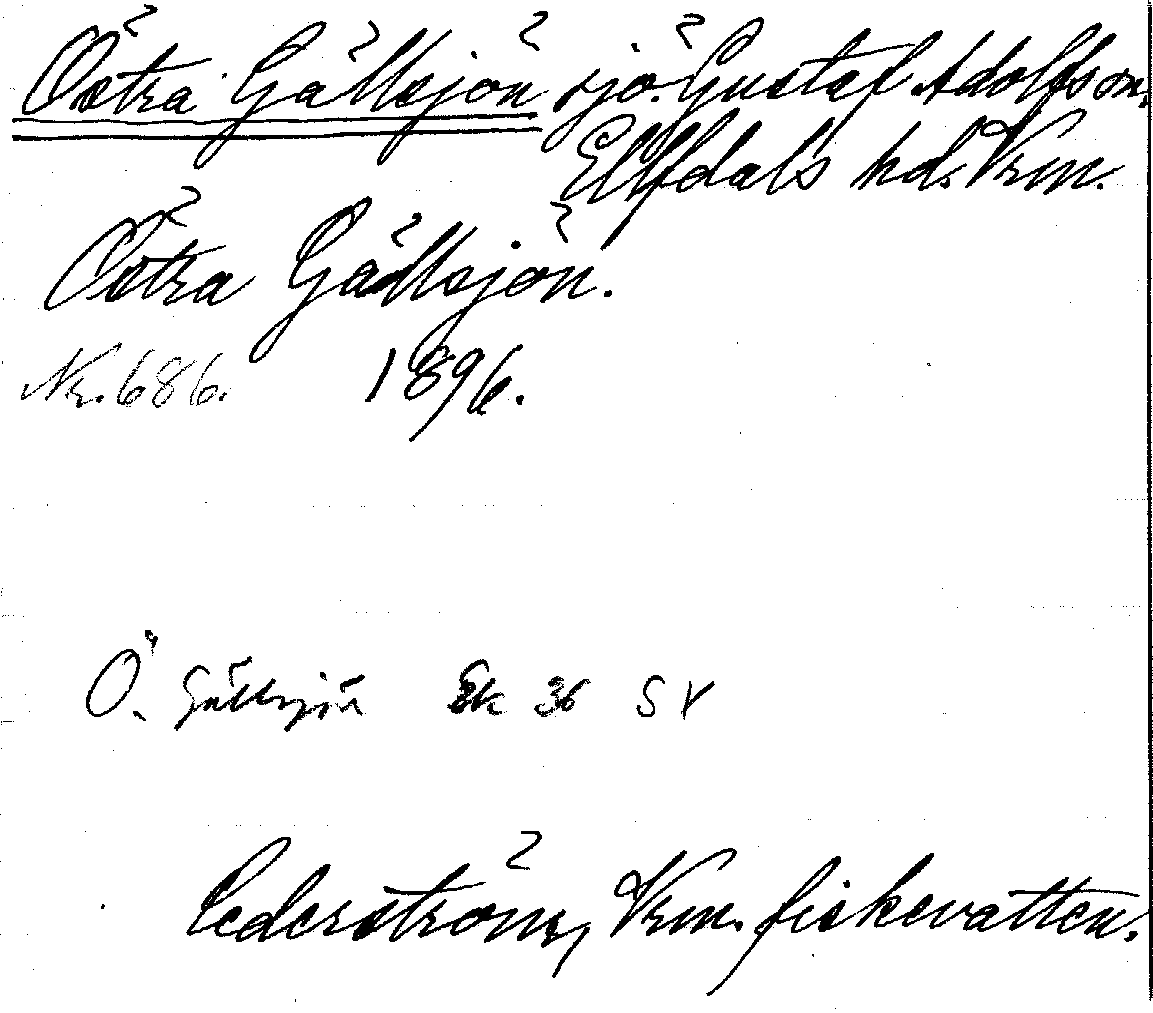 Östra Gällsjön sjö. Gustaf Adolfs sn.
Elfdals hd. Vrm.
Östra Gällsjön.
Nr. 686. 1896.
Ö. Gällsjön Ek 36 SV
Cederström, Vrm. fiskevatten.